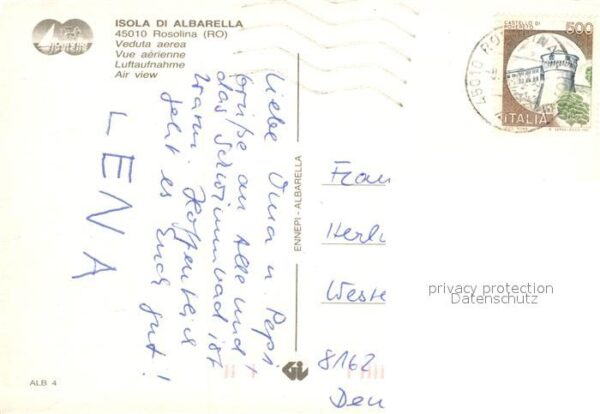 ISOLA DI ALBARELLA
45010 Rosolina (RO)
Veduta aerea
Vue aérienne
Luftaufnahme
Air view
Liebe Oma u. Pepi
Grüße an Alle und
das Schwimmbad ist
warm. Hoffentlich
geht es Euch gut!
LENA
ENNEPI - ALBARELLA
CASTELLO DI
ROVERETO
500
ITALIA
45010
Frau
Herli
Weste
8162
Den
privacy protection
Datenschutz
ALB 4